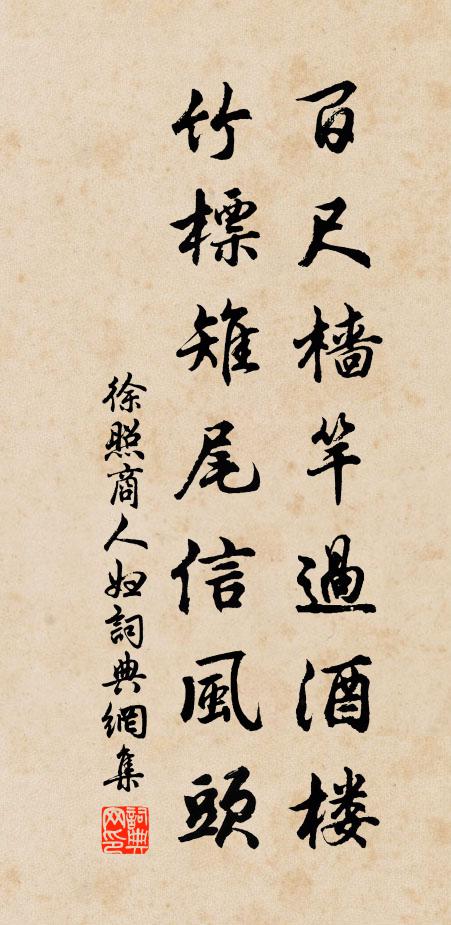 百尺樯竿過酒楼
竹標雉尾信風頭
徐照商人妇詞典網集
詞典网印